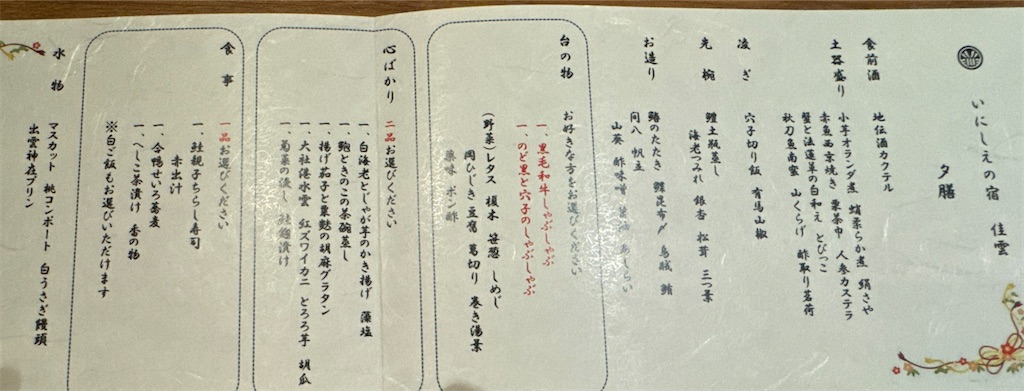 いにしえの宿 佳雲
夕膳
食前酒
地伝酒カクテル
土器盛り
小芋オランダ煮 蛸柔らか煮 絹さや
赤魚西京焼き 栗茶巾 人参カステラ
蟹と法蓮草の白和え とびっこ
秋刀魚南蛮 山くらげ 酢取り茗荷
凌ぎ
穴子切り飯 有馬山椒
先椀
鱧土瓶蒸し
海老つみれ 銀杏 松茸 三つ葉
お造り
鰆のたたき 鰹昆布〆 烏賊 鮪
間八 帆立
山葵 酢味噌 醤油 あしらい
台の物
お好きな方をお選びください
一、黒毛和牛しゃぶしゃぶ
一、のど黒と穴子のしゃぶしゃぶ
(野菜)レタス 榎木 笹葱 しめじ
岡ひじき 豆腐 葛切り 巻き湯葉
薬味 ポン酢
心ばかり
二品お選びください
一、白海老とじゃが芋のかき揚げ 藻塩
一、鮑ときのこの茶碗蒸し
一、揚げ茄子と粟麩の胡麻グラタン
一、大社湊水雲 紅ズワイカニ とろろ芋 胡瓜
一、菊菜の浸し 鮭麹漬け
食事
一品お選びください
一、鮭親子ちらし寿司
赤出汁
一、合鴨せいろ蕎麦
一、へしこ茶漬け 香の物
※白ご飯もお選びいただけます
水物
マスカット 桃コンポート 白うさぎ饅頭
出雲神在プリン